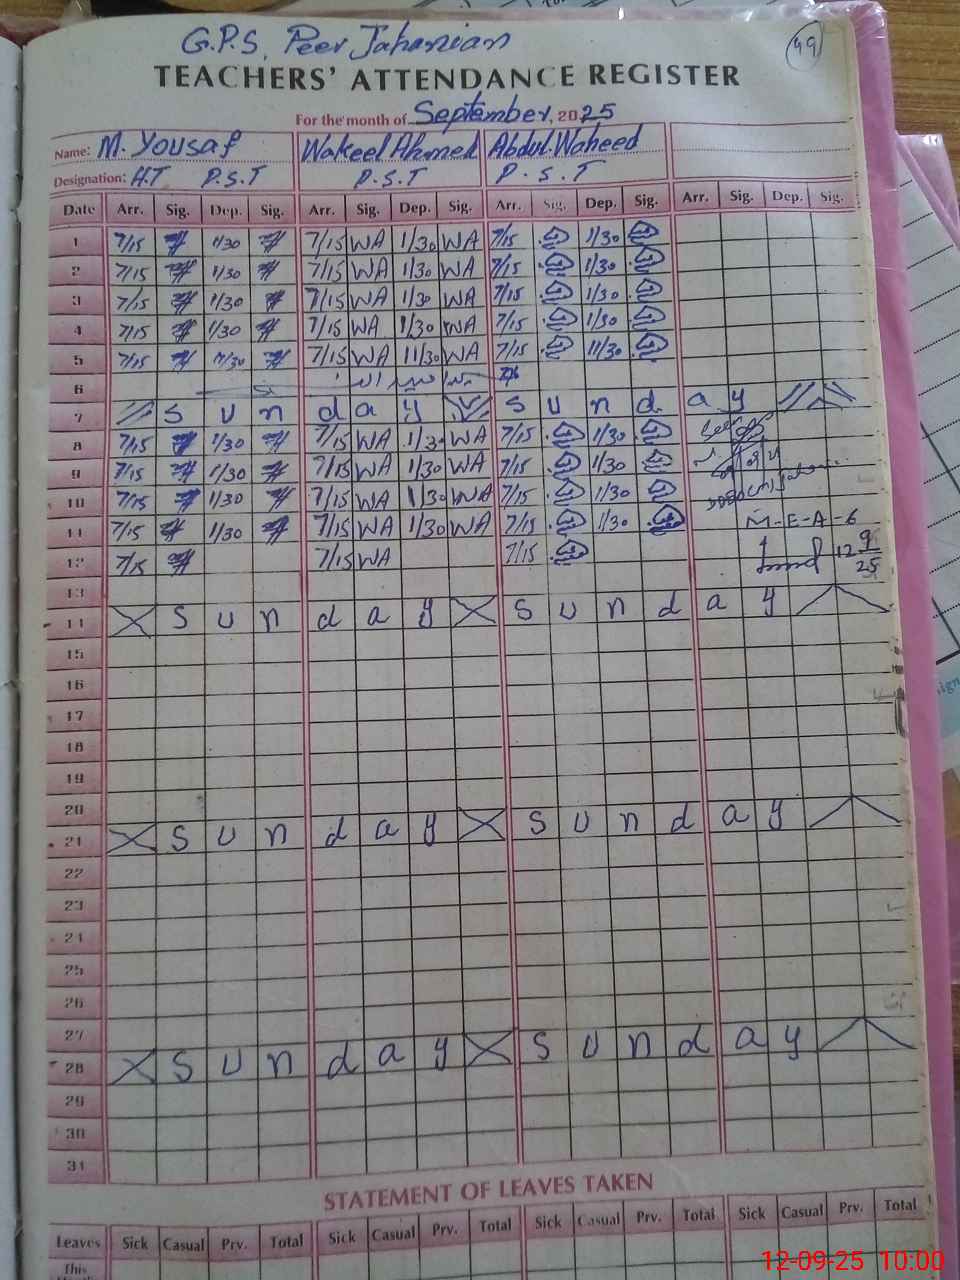 G.P.S, Peer Jahanian
49
TEACHERS' ATTENDANCE REGISTER
For the month of September, 2025
Name: M. Yousaf Wakeel Ahmed Abdul Waheed
Designation: H.T P.S.T P.S.T P.S.T
Date Arr. Sig. Dep. Sig. Arr. Sig. Dep. Sig. Arr. Sig. Dep. Sig. Arr. Sig. Dep. Sig.
1 7/15 1/30 7/15 WA 1/30 WA 7/15 1/30
2 7/15 1/30 7/15 WA 1/30 WA 7/15 1/30
3 7/15 1/30 7/15 WA 1/30 WA 7/15 1/30
4 7/15 1/30 7/15 WA 1/30 WA 7/15 1/30
5 7/15 11/30 7/15 WA 11/30 WA 7/15 11/30
6
7 S u n d a y S u n d a y
8 7/15 1/30 7/15 WA 1/30 WA 7/15 1/30
9 7/15 1/30 7/15 WA 1/30 WA 7/15 1/30
10 7/15 1/30 7/15 WA 1/30 WA 7/15 1/30
11 7/15 1/30 7/15 WA 1/30 WA 7/15 1/30 M-E-A-6
12 7/15 7/15 WA 7/15 12 9/25
13
14 S u n d a y S u n d a y
15
16
17
18
19
20
21 S u n d a y S u n d a y
22
23
24
25
26
27
28 S u n d a y S u n d a y
29
30
31
STATEMENT OF LEAVES TAKEN
Leaves Sick Casual Prv. Total Sick Casual Prv. Total Sick Casual Prv. Total Sick Casual Prv. Total
This
12-09-25 10:00